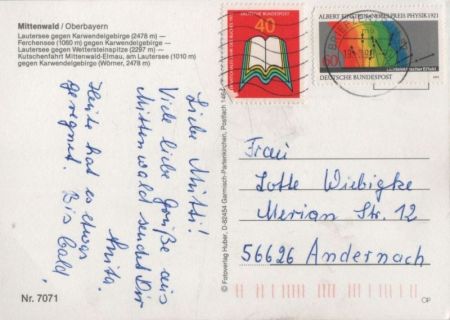 Mittenwald / Oberbayern
Lautersee gegen Karwendelgebirge (2478 m) —
Ferchensee (1060 m) gegen Karwendelgebirge —
Lautersee gegen Wettersteinspitze (2297 m) —
Kutschenfahrt Mittenwald-Elmau, am Lautersee (1010 m)
gegen Karwendelgebirge (Wörner, 2478 m)
Liebe Mutti!
Viele liebe Grüße aus
Mittenwald sendet Dir
Anita.
Heute hat es etwas
geregnet. Bis bald,
Nr. 7071
© Fotoverlag Huber, D-82454 Garmisch-Partenkirchen, Postfach
DEUTSCHE BUNDESPOST
40
ALBERT EINSTEIN · NOBELPREIS PHYSIK 1921
60
DEUTSCHE BUNDESPOST
Frau
Lotte Wiebigke
Marian Str. 12
56626 Andernach